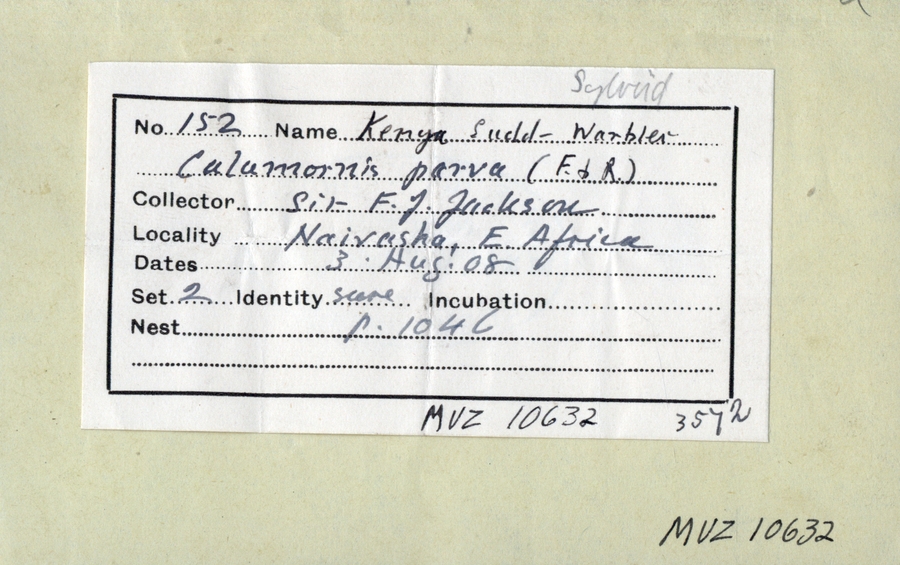 Sylviid
No. 152 Name Kenya Sudd- Warbler
Calamornis parva (F. & R.)
Collector Sir F. J. Jackson
Locality Naivasha, E. Africa
Dates 3. Aug: 08
Set 2 Identity sure Incubation
Nest p. 104
MVZ 10632 3572
MVZ 10632